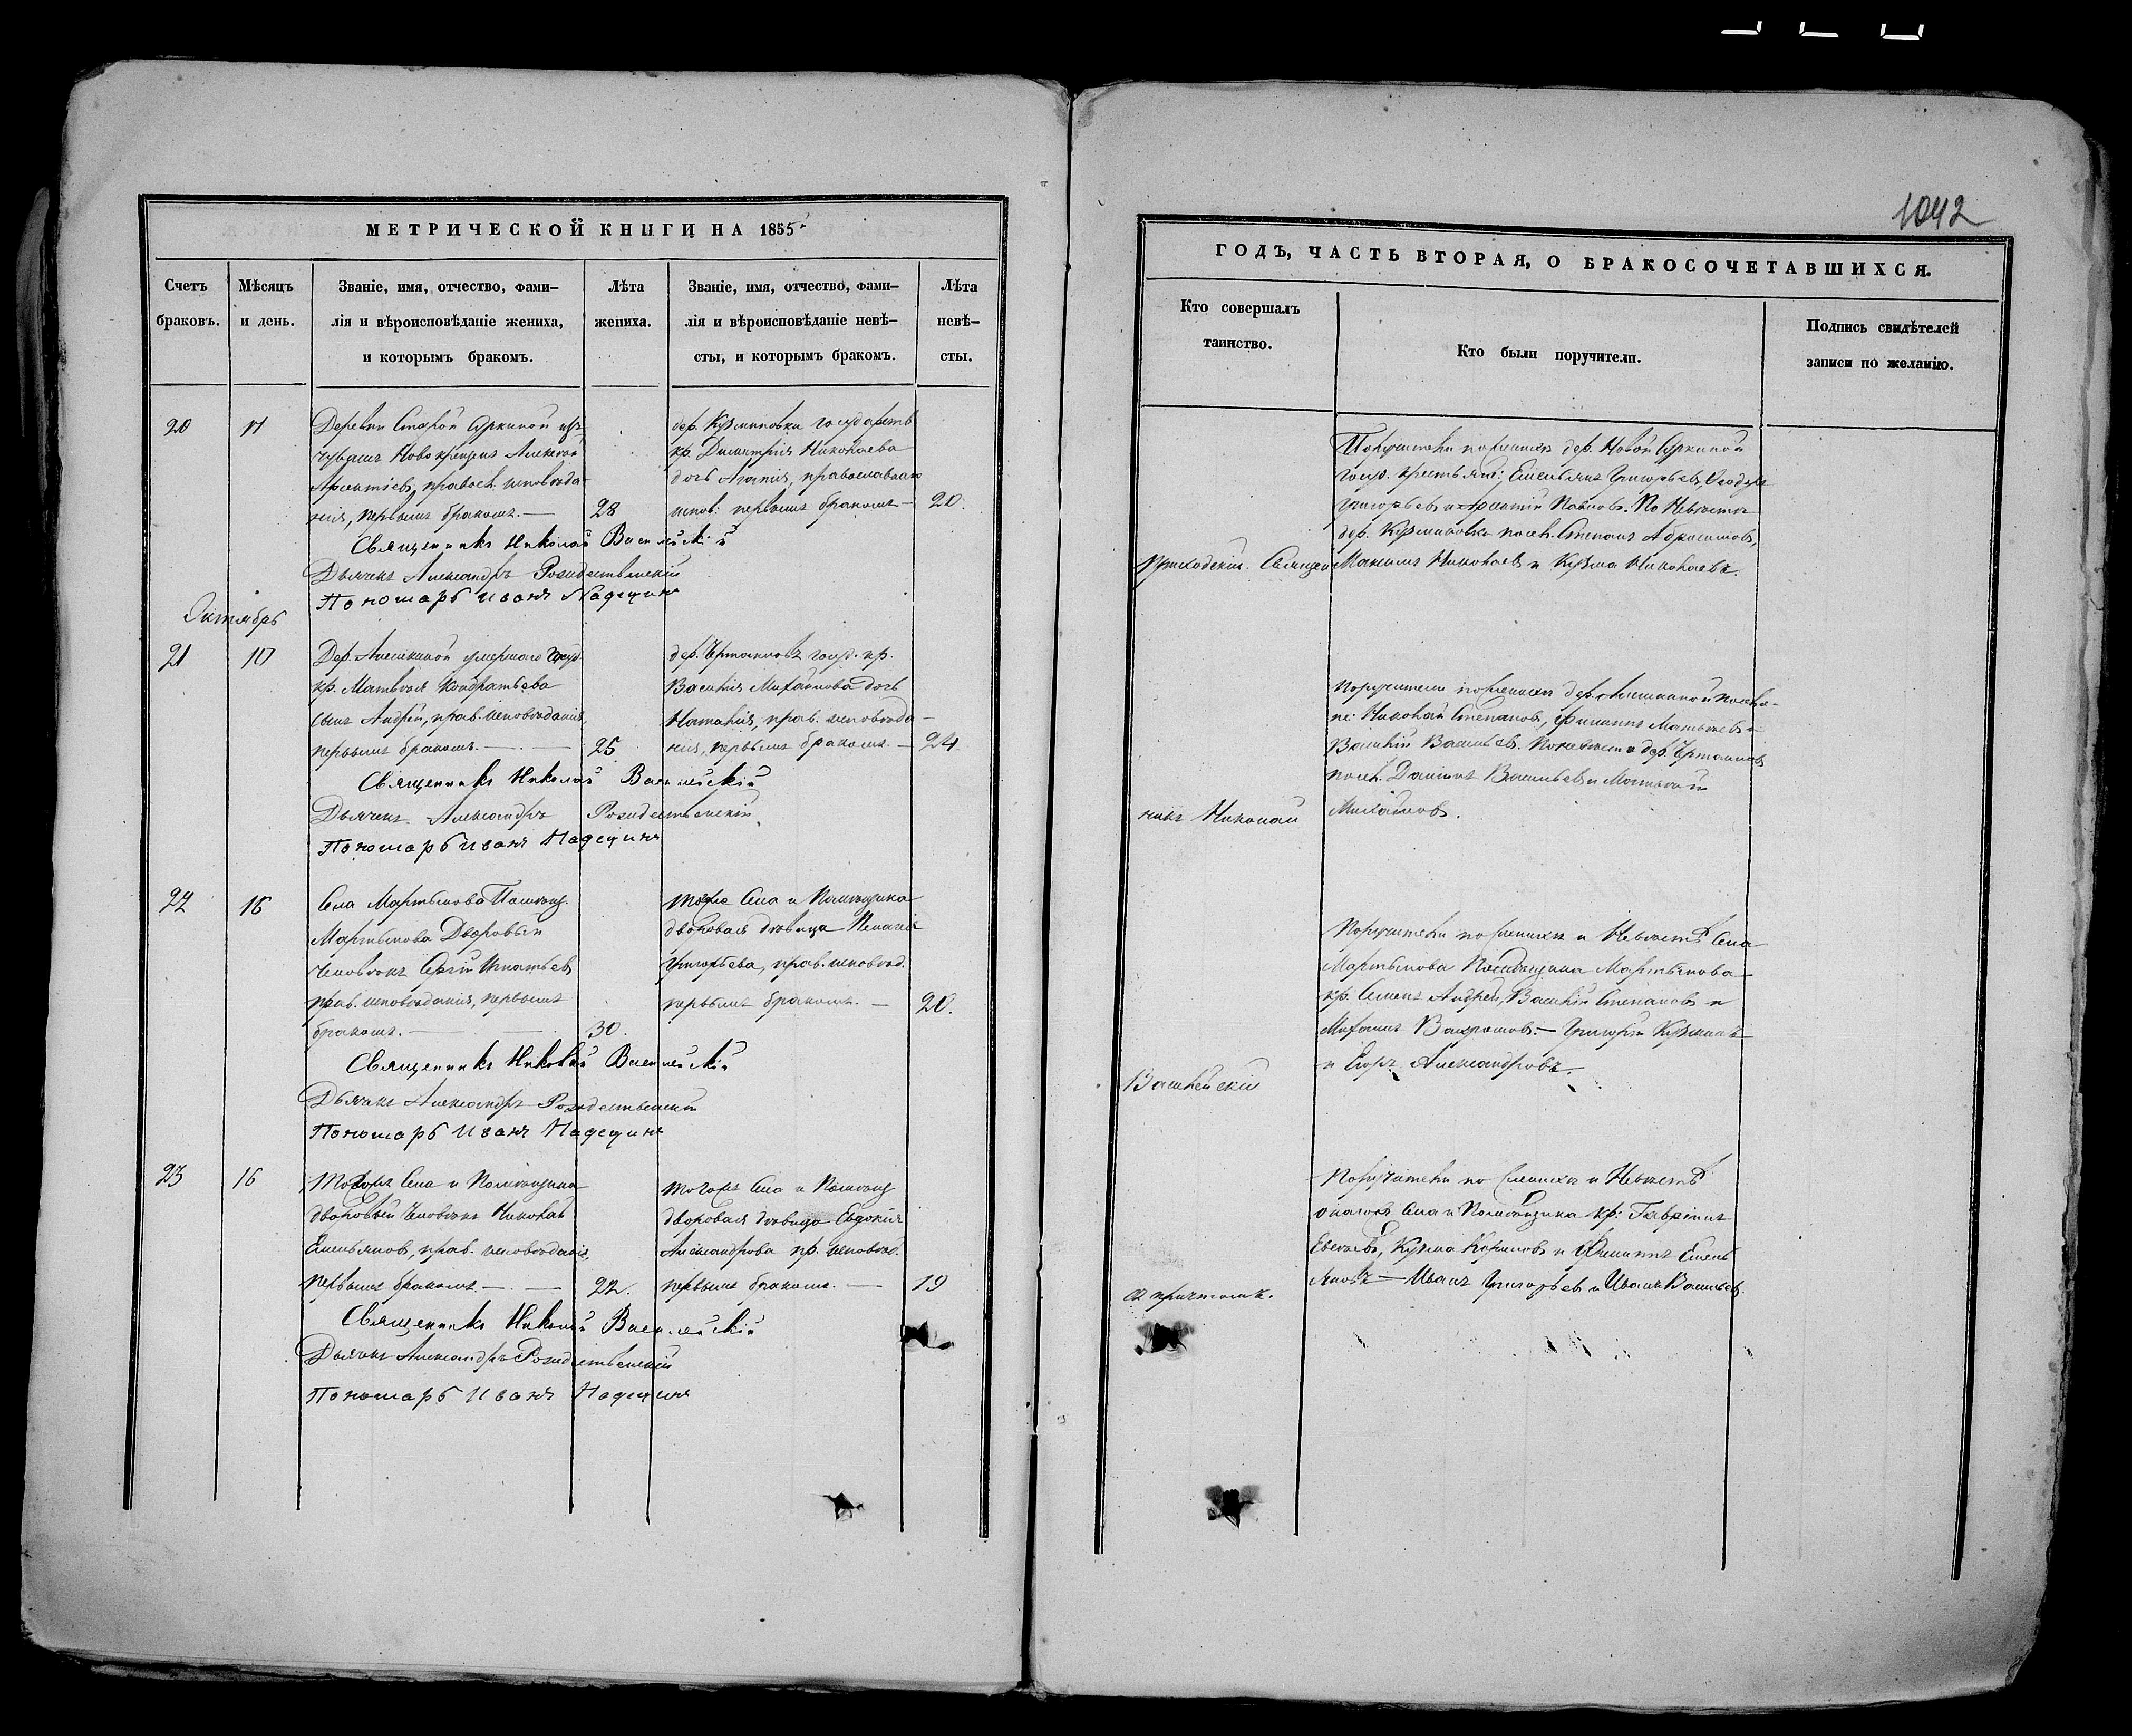 МЕТРИЧЕСКОЙ КНИГИ НА 1855
Счетъ браковъ.
Мѣсяцъ и день.
Званіе, имя, отчество, фами-
лія и вѣроисповѣданіе жениха,
и которымъ бракомъ.
Лѣта
жениха.
Званіе, имя, отчество, фами-
лія и вѣроисповѣданіе невѣ-
сты, и которымъ бракомъ.
Лѣта
невѣ-
сты.
20
Деревни Старой Суркиной изъ
чувашъ Новокрещенъ Алексѣй
Арсентіевъ, правосл. исповѣда-
нія, первымъ бракомъ.—
28
дер. Кузминовки государств
кр. Димитрія Николаева
дочь Агапія, православнаго
испов: первымъ бракомъ—
20.
Священникъ Николай Васильевскій
Дьячекъ Александръ Рождественскій
Пономарь Иванъ Надеждинъ
Октябрь
21
10
Дер. Алешкиной умершаго Госуд.
кр. Матвѣя Кондратьева
сынъ Андрей, прав. исповѣданія,
первымъ бракомъ.—
25
госуд. кр.
Василія Михайлова дочь
Наталія, прав. исповѣда-
нія, первымъ бракомъ.—
24
Священникъ Николай
Дьячекъ Александръ Рождественскій
Пономарь Иванъ
22
16
Села Мартынова Помѣщ.
Мартынова Дворовый
человѣкъ Сергій Игнатьевъ
прав. исповѣданія, первымъ
бракомъ.—
30.
тогоже Села и Помѣщика
дворовая дѣвица Пелагія
Григорьева, прав. исповѣд.
первымъ бракомъ.—
20.
Священникъ Николай
Дьячекъ Александръ Рождественскій
Пономарь Иванъ
23
16
Тогожъ Села и Помѣщика
дворовый человѣкъ Николай
Емельяновъ, прав. исповѣданія,
первымъ бракомъ—
22.
тогожъ Села и Помѣщ
дворовая дѣвица Евдокія
Александрова пр. исповѣд.
первымъ бракомъ.—
19
Священникъ Николай
Дьячекъ Александръ Рождественскій
Пономарь Иванъ
1042
ГОДЪ, ЧАСТЬ ВТОРАЯ, О БРАКОСОЧЕТАВШИХСЯ.
Кто совершалъ
таинство.
Кто были поручители.
Подпись свидѣтелей
записи по желанію.
Приходскій Священ
никъ Николай
и причтомъ.
Поручители по женихѣ дер. Новой Суркиной
госуд. крестьяне: Емельянъ Григорьевъ, Феодоръ
Григорьевъ и По Невѣстѣ
дер. Кузминовки Степанъ
Максимъ Николаевъ и Кузма Николаевъ.
поручители по женихѣ дер. Алешкиной
Николай Степановъ, Филиппъ Матвѣевъ и
Василій Васильевъ. По невѣстѣ дер.
Васильевъ и Матвѣй
Михайловъ.
Поручители по женихѣ и Невѣстѣ Села
Мартынова Помѣщика Мартынова
кр. Семенъ Василій Степановъ и
Григорій Кузминъ
и Егоръ Александровъ.
Поручители по женихѣ и Невѣстѣ
Села и Помѣщика кр: Гавріилъ
Кузма и Филиппъ Емель
яновъ— Иванъ Григорьевъ и Иванъ Васильевъ.